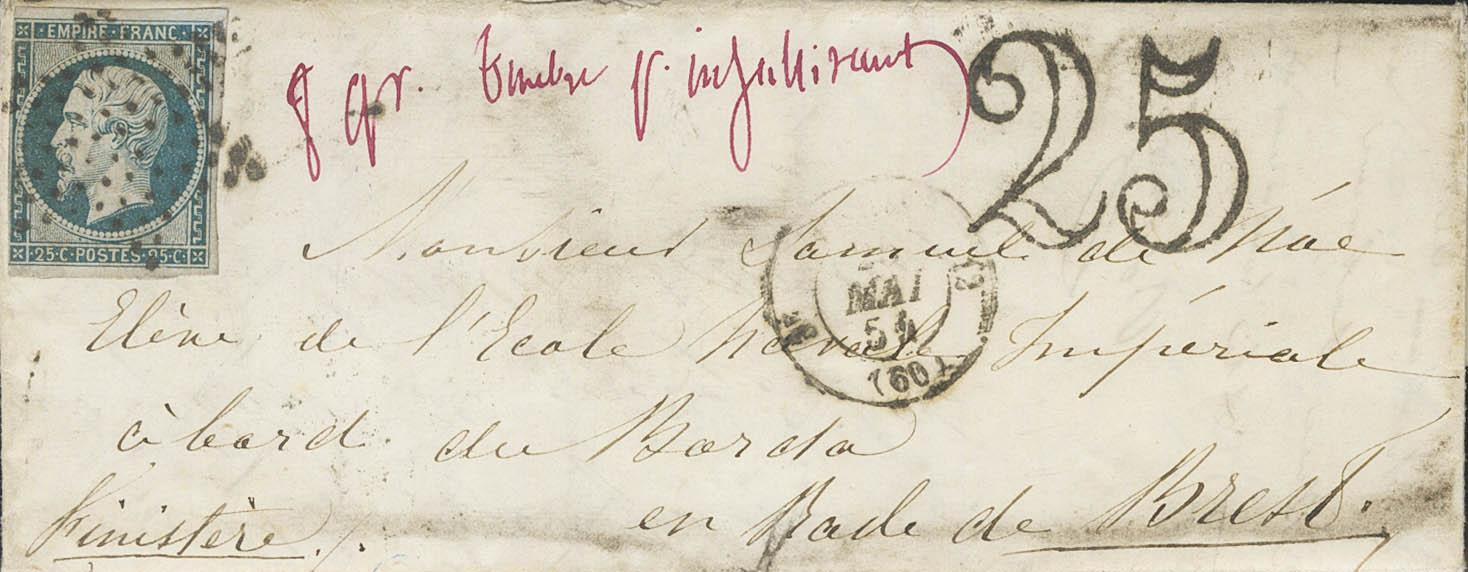 EMPIRE·FRANC·
25·C·POSTES·25·C·
8 gr. Timbre p. insuffisant
25
MAI
54
(60)
Monsieur Samuel de
Elève de l'Ecole Navale Impériale
à bord du Borda
en Rade de Brest.
Finistère